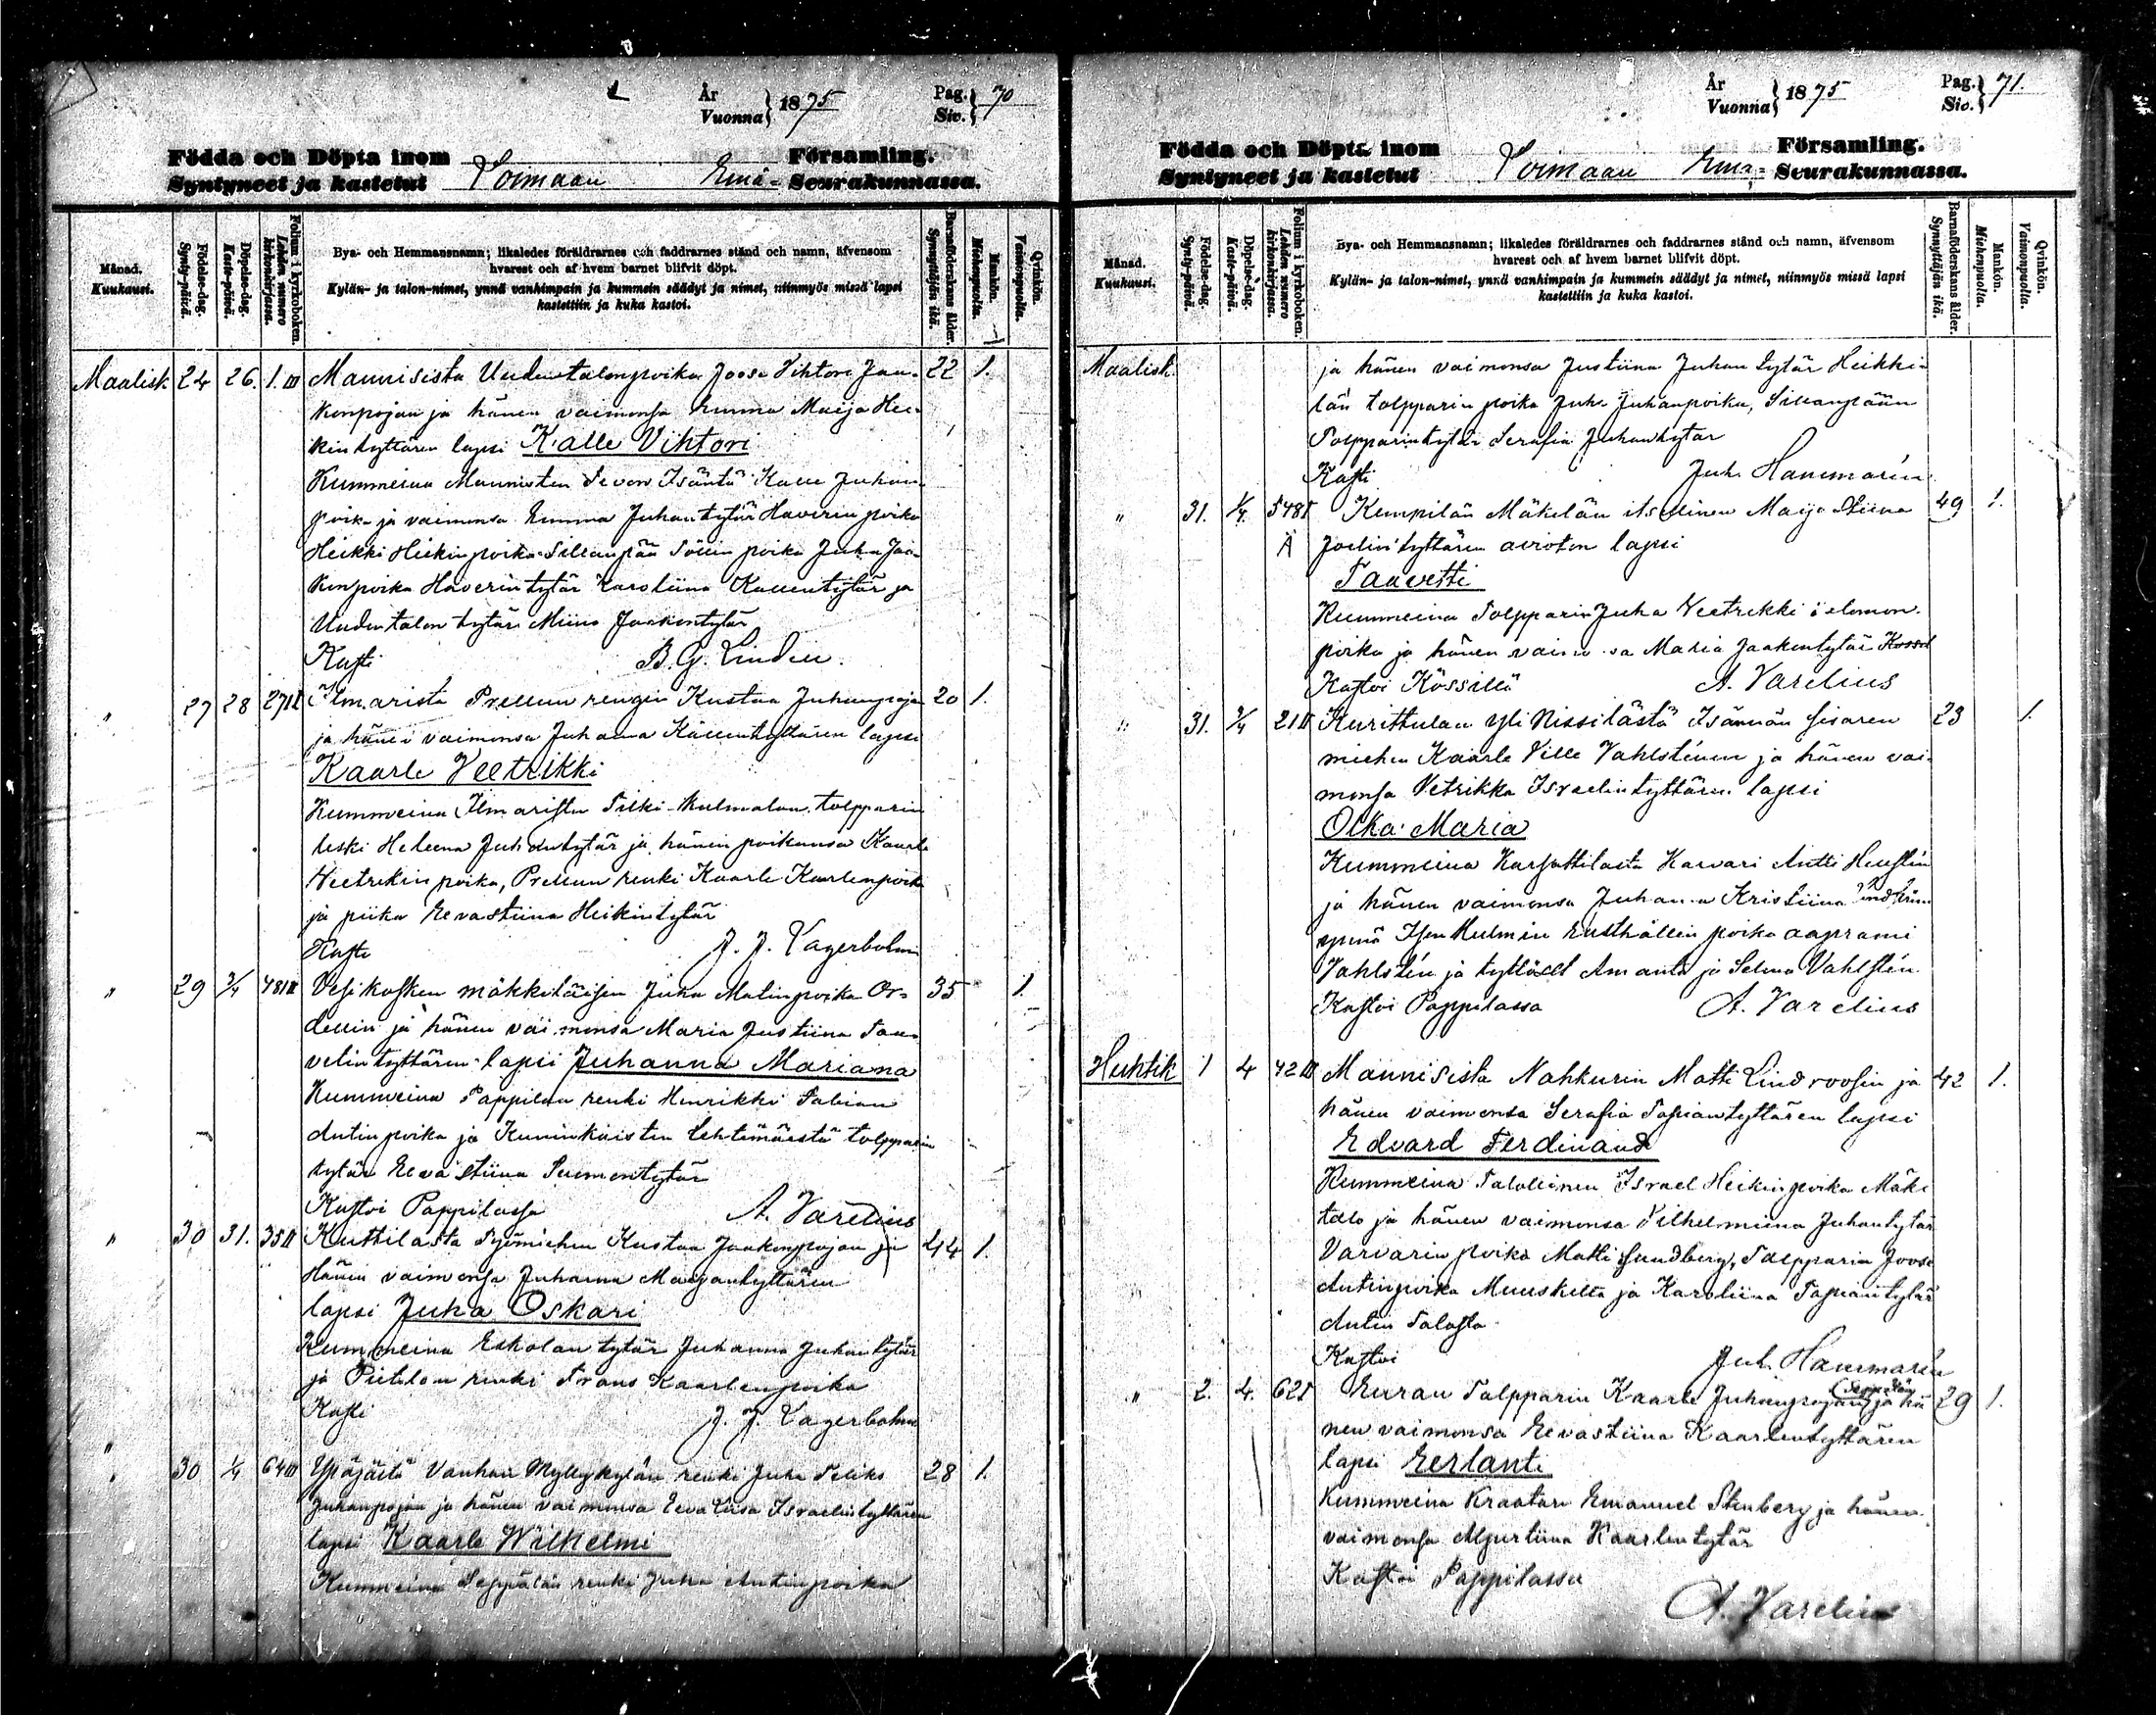 År
Vuonna } 1875
Pag.
Siv. } 70
Födda och Döpta inom Församling.
Syntyneet ja kastetut Loimaan Emä- Seurakunnassa.
Månad.
Kuukausi.
Födelse-dag.
Synty-päivä.
Döpelse-dag.
Kaste-päivä.
Folium i kyrkoboken.
Lehden numero kirkonkirjassa.
Bya- och Hemmansnamn; likaledes föräldrarnes och faddrarnes stånd och namn, äfvensom
hvarest och af hvem barnet blifvit döpt.
Kylän- ja talon-nimet, ynnä vanhimpain ja kummein säädyt ja nimet, niinmyös missä lapsi
kastettiin ja kuka kastoi.
Barnaföderskans ålder.
Synnyttäjän ikä.
Mankön.
Miehenpuolta.
Qvinkön.
Vaimonpuolta.
Maalisk 24 26. 1.III Mannisista Uudentalonpoika Joose Vihtori Jaa- 22 1.
konpojan ja hänen vaimonsa Emma Maija Hei-
kintyttären lapsi Kalle Vihtori
Kummeina Mannisten Isäntä Kalle Juhan
poika ja vaimonsa Emma Juhantytär Haverin poika
Heikki Heikinpoika Sillanpään poika Juha Jaa-
konpoika Haverin tytär Karoliina Kallentytär ja
Uudentalon tytär Miina Jaakontytär
Kasti B. G. Linden.
" 27 28 27II Ilmarista Prellun rengin Kustaa Juhanpojan 20 1.
ja hänen vaimonsa Juhanna Kallentyttären lapsi
Kaarle Veetrikki
Kummeina Ilmaristen Kulmalan tolpparin
leski Heleena Juhantytär ja hänen poikansa Kaarle
Veetrikin poika, Prellun renki Kaarle Kaarlenpoika
ja piika Eevastiina Heikintytär
Kasti J. J. Lagerbohm
" 29 3/4 481II Vesikosken mäkkiläisen Juha Matinpoika Or- 35 1.
dellin ja hänen vaimonsa Maria Justiina Taa-
velintyttären lapsi Juhanna Mariana
Kummeina Pappilan renki Henrikki Fabian
Antinpoika ja Kuninkaisten Lehtimäestä tolpparin
tytär Eevastiina Simontytär
Kastoi Pappilassa A. Varelius
" 30 31. 35II Kuttilasta Työmiehen Kustaa Jaakonpojan ja 44 1.
Hänen vaimonsa Juhanna Maijantyttären
lapsi Juha Oskari
Kummeina Eskolan tytär Juhanna Juhantytär
ja Pietilän renki Frans Kaarlenpoika
Kasti J. J. Lagerbohm
" 30 1/4 64III Ypäjältä Vanhan Myllykylän renki Juha Feliks 28 1.
Juhanpojan ja hänen vaimonsa Eeva Liisa Israelintyttären
lapsi Kaarle Wilhelmi
Kummeina Seppälän renki Juha Antinpoika
År
Vuonna } 1875
Pag.
Siv. } 71.
Födda och Döpta inom Församling.
Syntyneet ja kastetut Loimaan Emä- Seurakunnassa.
Månad.
Kuukausi.
Födelse-dag.
Synty-päivä.
Döpelse-dag.
Kaste-päivä.
Folium i kyrkoboken.
Lehden numero kirkonkirjassa.
Bya- och Hemmansnamn; likaledes föräldrarnes och faddrarnes stånd och namn, äfvensom
hvarest och af hvem barnet blifvit döpt.
Kylän- ja talon-nimet, ynnä vanhimpain ja kummein säädyt ja nimet, niinmyös missä lapsi
kastettiin ja kuka kastoi.
Barnaföderskans ålder.
Synnyttäjän ikä.
Mankön.
Miehenpuolta.
Qvinkön.
Vaimonpuolta.
Maalisk. ja hänen vaimonsa Justiina Juhantytär Heikki-
län tolpparin poika Juha Juhanpoika, Sillanpään
Tolpparintytär Serafia Juhantytär
Kasti Juh. Hammarén
" 31. 1/4. 548I Kempilän Mäkelän itsellinen Maija Stiina 49 1.
Ä Joelintyttären avioton lapsi
Taavetti
Kummeina Tolppari Juha Veetrikki Salomon
poika ja hänen vaimonsa Maria Jaakontytär
Kastoi Kössillä A. Varelius
" 31. 3/4 21II Kurittulan Yli Nissilästä Isännän sisaren 23 1.
miehen Kaarle Ville Vahlsténin ja hänen vai-
monsa Vetrikka Israelintyttären lapsi
Olka Maria
Kummeina Karsattilasta Karvari Antti Hellstén
ja hänen vaimonsa Juhanna Kristiina
ynnä Ison Kulmin Rusthållin poika Aaprami
Vahlstén ja tyttäret Amanta ja Selma Vahlstén.
Kastoi Pappilassa A. Varelius
Huhtik 1 4 42III Mannisista Nahkurin Matti Lindroosin ja 42 1.
hänen vaimonsa Serafia Tapiantyttären lapsi
Edvard Ferdinand
Kummeina Talollinen Israel Heikinpoika Mäki
talo ja hänen vaimonsa Vilhelmiina Juhantytär
Varvarin poika Matti Sundberg, Talpparin Joose
Antinpoika Muuskilta ja Karoliina Tapiantytär
Antin Talosta
Kastoi Juh. Hammarén
" 2. 4. 62I Euran Talpparin Kaarle Juhanpojan ja hä- 29 1.
nen vaimonsa Eevastiina Kaarlentyttären
lapsi Eerlanti
Kummeina Kraatari Emanuel Stenberg ja hänen
vaimonsa Kaarlentytär
Kastoi Pappilassa
A. Varelius